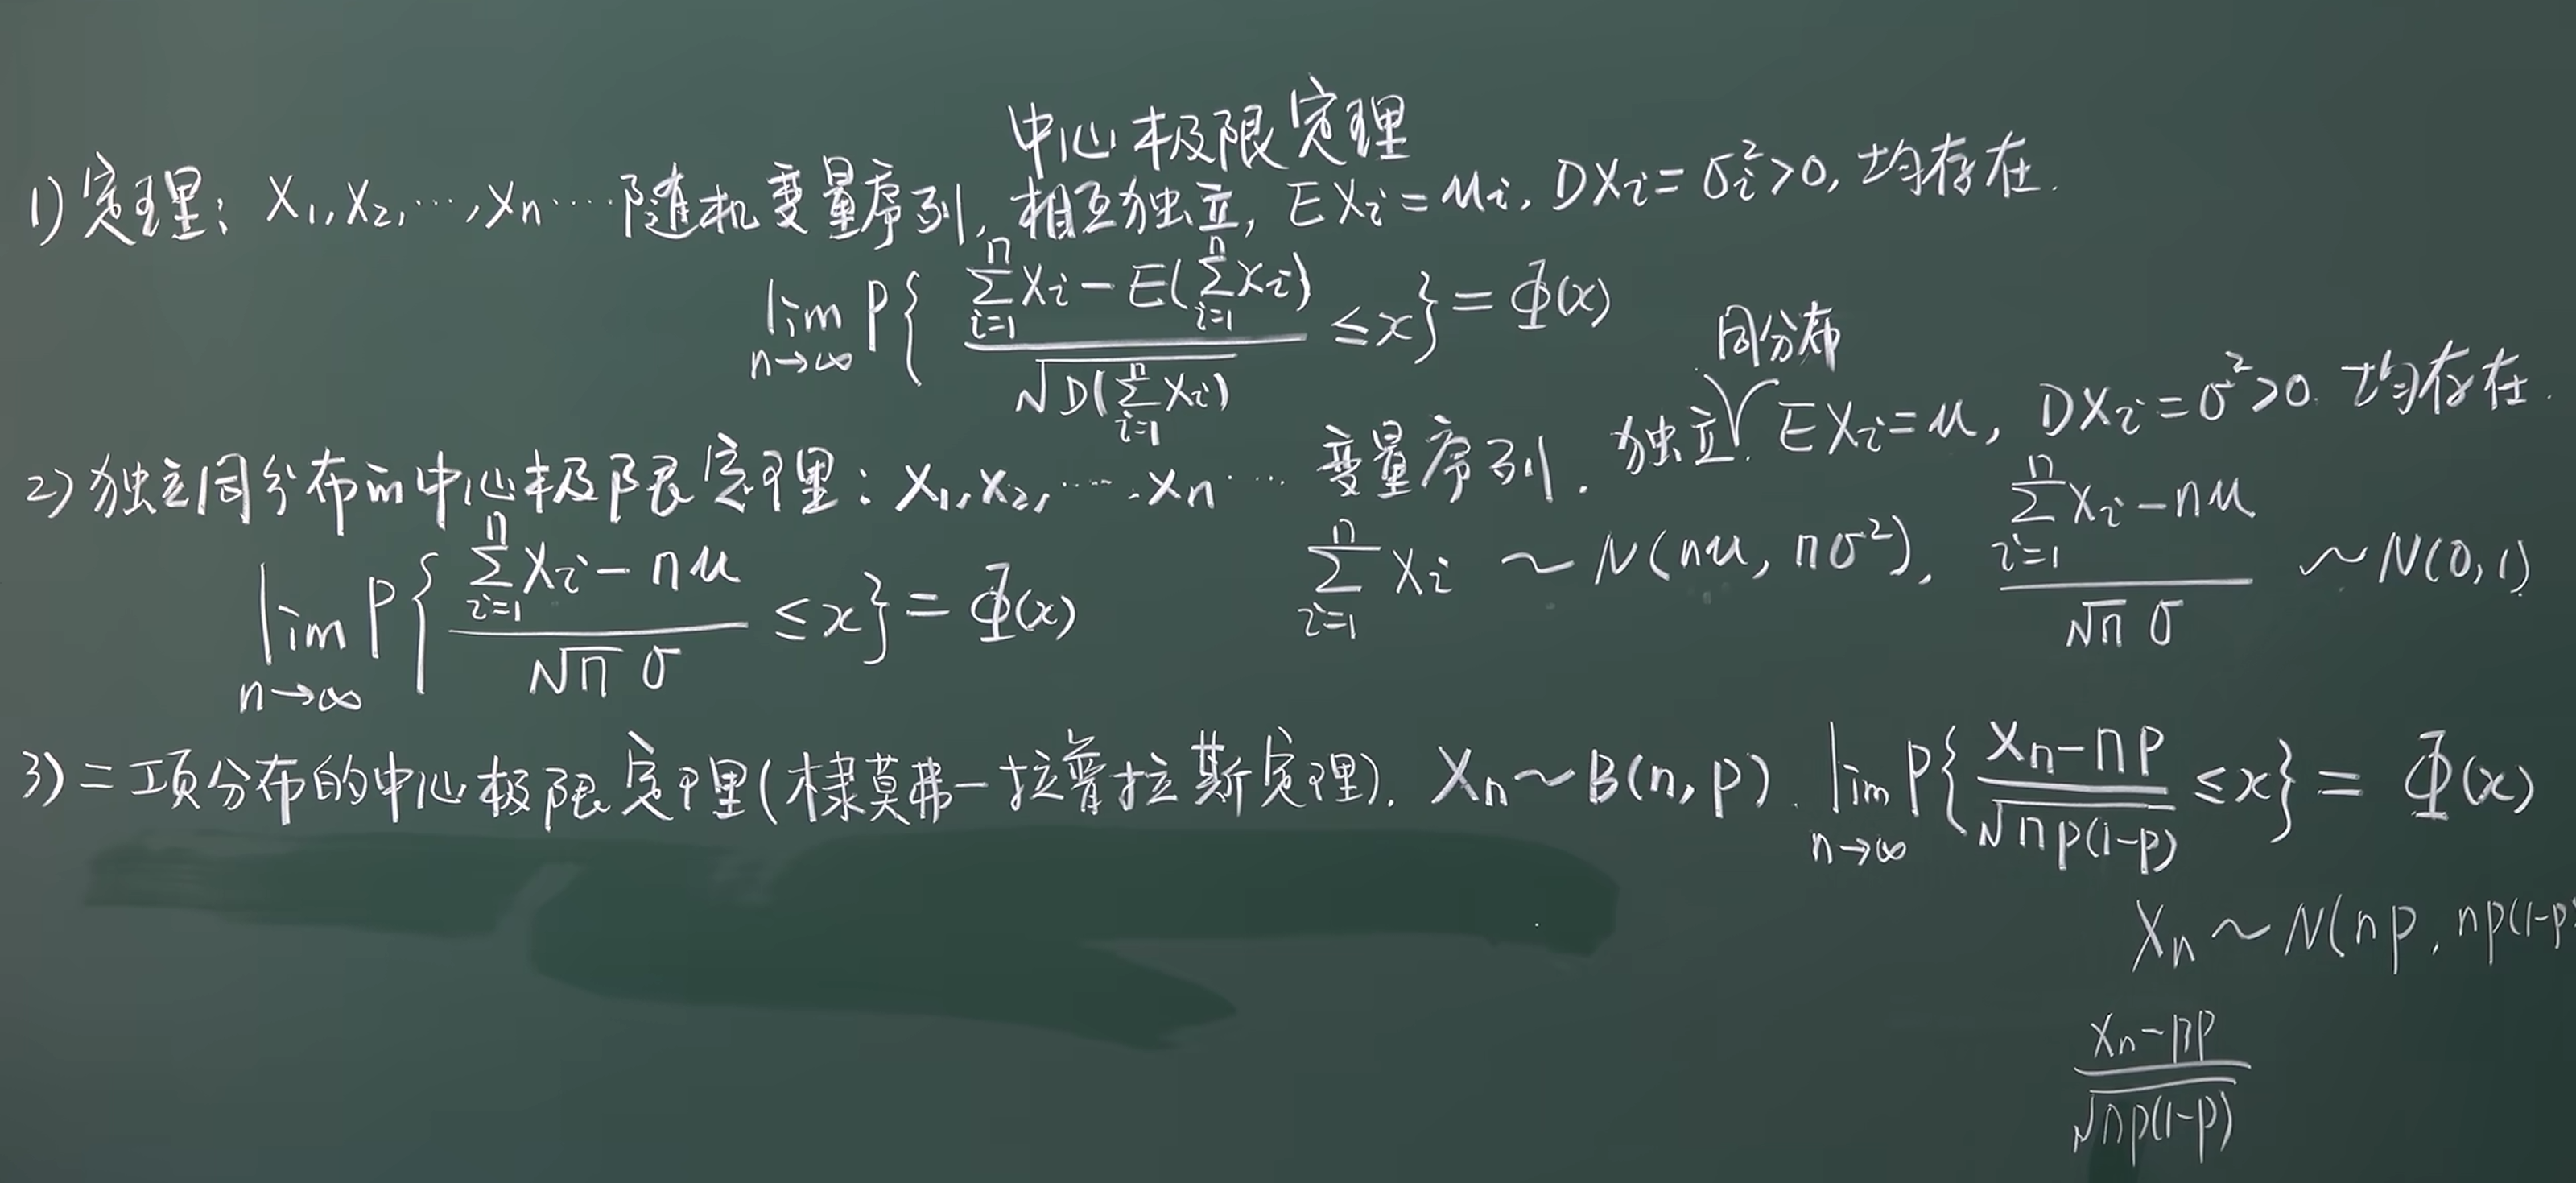 中心极限定理
1) 定理: X₁, X₂, ⋯, Xn ⋯ 随机变量序列, 相互独立, EXi = μi, DXi = σi² > 0, 均存在.
lim n→∞ P{ (∑ i=1 n Xi − E(∑ i=1 n Xi)) / √D(∑ i=1 n Xi) ≤ x } = Φ(x)
同分布
2) 独立同分布的中心极限定理: X₁, X₂, ⋯, Xn ⋯ 变量序列. 独立. EXi = μ, DXi = σ² > 0. 均存在.
lim n→∞ P{ (∑ i=1 n Xi − nμ) / √n σ ≤ x } = Φ(x) ∑ i=1 n Xi ~ N(nμ, nσ²), (∑ i=1 n Xi − nμ) / √n σ ~ N(0, 1)
3) 二项分布的中心极限定理(棣莫弗—拉普拉斯定理). Xn ~ B(n, p). lim n→∞ P{ (Xn − np) / √np(1−p) ≤ x } = Φ(x)
Xn ~ N(np, np(1−p)
(Xn − np) / √np(1−p)